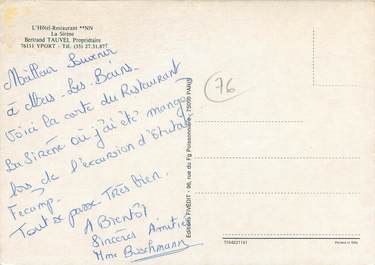 L'Hôtel-Restaurant **NN
La Sirène
Bertrand TAUVEL Propriétaire
76111 YPORT - Tél. (35) 27.31.87
Meilleur Souvenir
à Mers-Les-Bains.
Voici la carte du Restaurant
La Sirène où j'ai été mangé
lors de l'excursion d'Etretat
Fécamp.
Tout se passe Très bien.
A Bientôt
Sincères Amitiés
Mme Buschmann
76
Editions FIVEDIT - 96, rue du Fg Poissonnière, 75010 PARIS
Printed in Italy